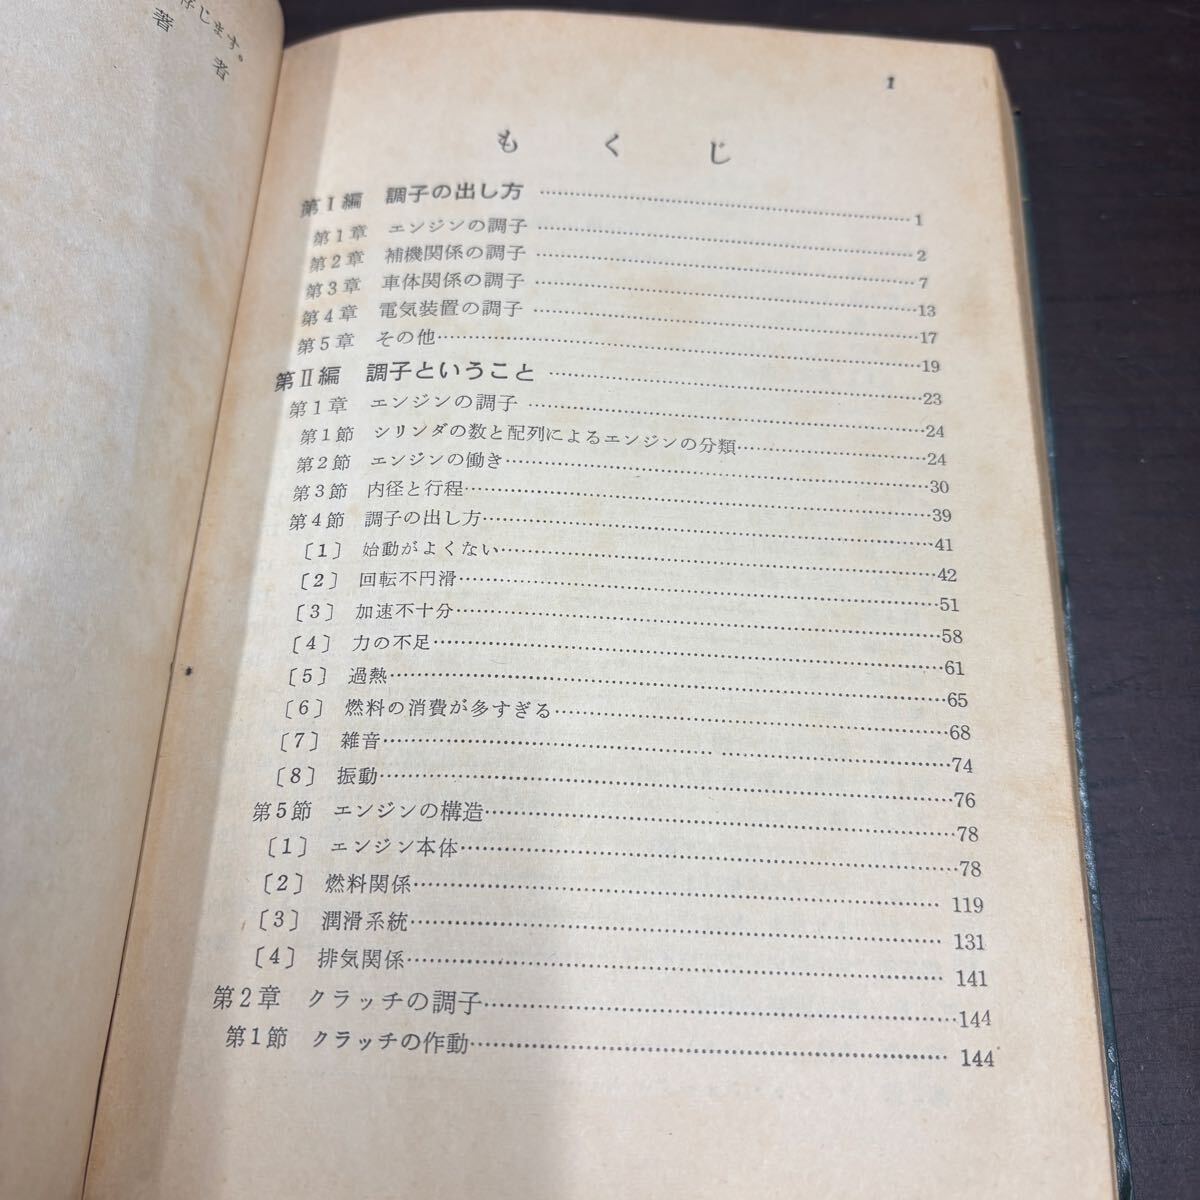 じます。
著者
1
もくじ
第Ⅰ編 調子の出し方……………………1
第1章 エンジンの調子……………………2
第2章 補機関係の調子……………………7
第3章 車体関係の調子……………………13
第4章 電気装置の調子……………………17
第5章 その他……………………19
第Ⅱ編 調子ということ……………………23
第1章 エンジンの調子……………………24
第1節 シリンダの数と配列によるエンジンの分類……………………24
第2節 エンジンの働き……………………30
第3節 内径と行程……………………39
第4節 調子の出し方……………………41
〔1〕 始動がよくない……………………42
〔2〕 回転不円滑……………………51
〔3〕 加速不十分……………………58
〔4〕 力の不足……………………61
〔5〕 過熱……………………65
〔6〕 燃料の消費が多すぎる……………………68
〔7〕 雑音……………………74
〔8〕 振動……………………76
第5節 エンジンの構造……………………78
〔1〕 エンジン本体……………………78
〔2〕 燃料関係……………………119
〔3〕 潤滑系統……………………131
〔4〕 排気関係……………………141
第2章 クラッチの調子……………………144
第1節 クラッチの作動……………………144